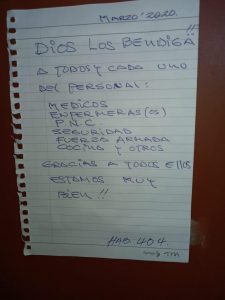 MARZO'2020.
DIOS LOS BENDIGA!!
A TODOS Y CADA UNO
DEL PERSONAL:
MEDICOS
ENFERMERAS(OS)
P.N.C.
SEGURIDAD
FUERZA ARMADA
COCINA Y OTROS
GRACIAS A TODOS ELLOS
ESTAMOS MUY
BIEN!!
HAB. 404.